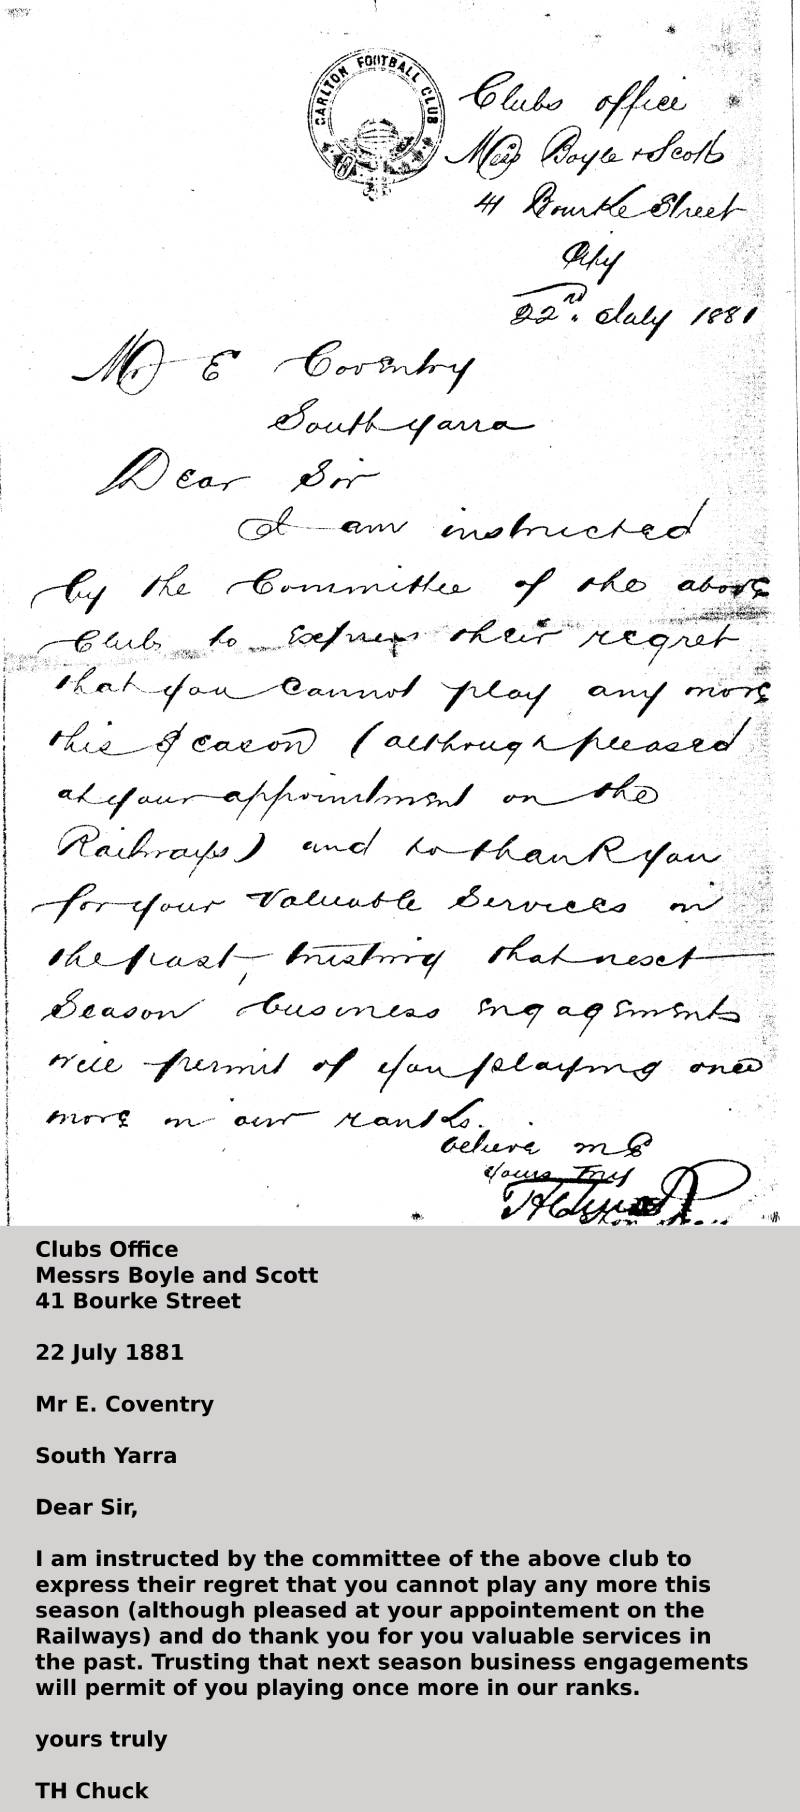 CARLTON FOOTBALL CLUB
Clubs office
Boyle & Scott
41 Bourke Street
City
22nd. July 1881
Mr E Coventry
South Yarra
Dear Sir
I am instructed
by the Committee of the above
Club to Express their regret
that you cannot play any more
this Season (although pleased
at your appointment on the
Railways) and to thank you
for your valuable Services in
the past, trusting that next
Season business engagements
will permit of you playing once
more in our ranks.
believe me
yours truly
Clubs Office
Messrs Boyle and Scott
41 Bourke Street
22 July 1881
Mr E. Coventry
South Yarra
Dear Sir,
I am instructed by the committee of the above club to
express their regret that you cannot play any more this
season (although pleased at your appointement on the
Railways) and do thank you for you valuable services in
the past. Trusting that next season business engagements
will permit of you playing once more in our ranks.
yours truly
TH Chuck